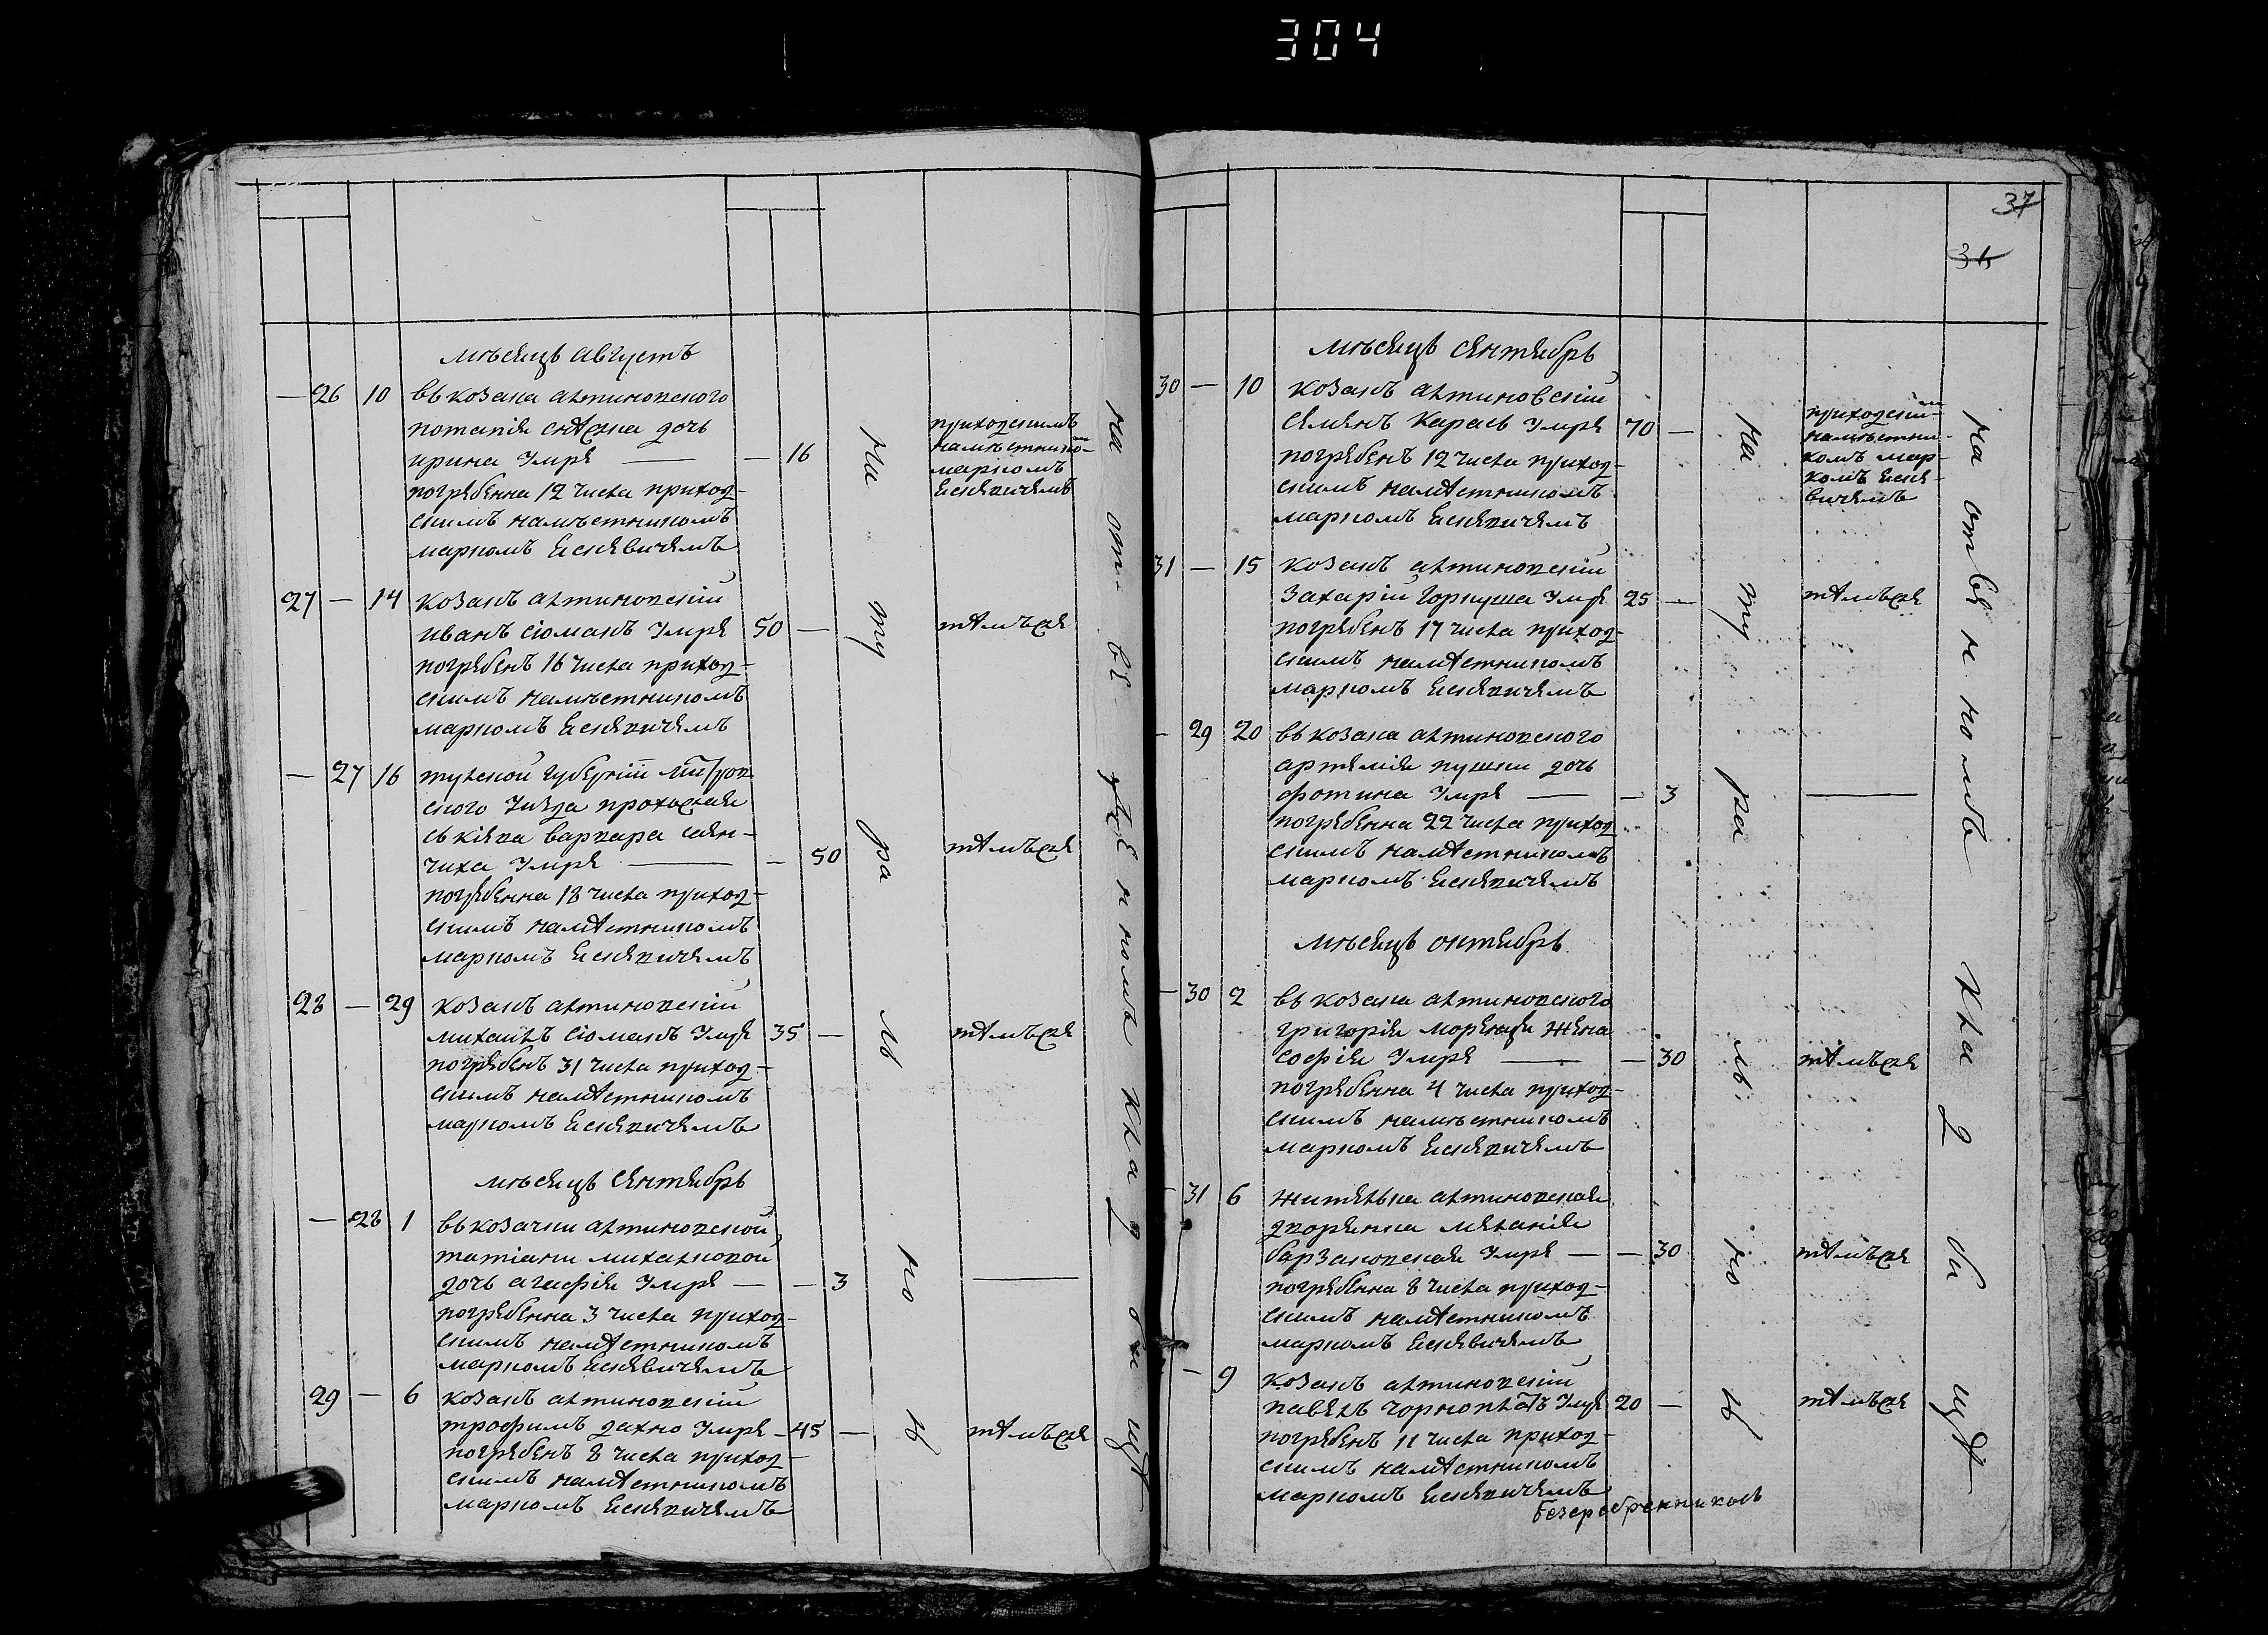 304
мѣсяцъ августъ
— 26 10 въ козака алтиновского
потапія
дочь
ирина умре — — 16
погребенна 12 числа приход-
скимъ намѣстникомъ
маркомъ Ескевичемъ
приходскимъ
намѣстнико-
маркомъ
Ескевичемъ
27 — 14 козакъ алтиновскій
иванъ сіомакъ умре 50 —
погребенъ 16 числа приход-
скимъ намѣстникомъ
маркомъ Ескевичемъ
тѣмъже
— 27 16 тулской губерніи
ского уезда
варвара
чиха умре — — 50
погребенна 18 числа приход-
скимъ намѣстникомъ
маркомъ Ескевичемъ
тѣмъже
28 — 29 козакъ алтиновскій
михаилъ сіомакъ умре 35 —
погребенъ 31 числа приход-
скимъ намѣстникомъ
маркомъ Ескевичемъ
тѣмъже
мѣсяцъ сентябрь
— 28 1 въ козачки алтиновской
татіани михалковой
дочь агафія умре — — 3 —
погребенна 3 числа приход-
скимъ намѣстникомъ
маркомъ Ескевичемъ
29 — 6 козакъ алтиновскій
трофимъ дахно умре — 45 —
погребенъ 8 числа приход-
скимъ намѣстникомъ
маркомъ Ескевичемъ
тѣмъже
на ту ра л но й
на от- ве- де нномъ кла д би щѣ
37
36
мѣсяцъ сентябрь
30 — 10 козакъ алтиновскій
семенъ карась умре 70 —
погребенъ 12 числа приход-
скимъ намѣстникомъ
маркомъ Ескевичемъ
приходски-
намѣстни-
комъ мар-
комъ Еске-
вичемъ
31 — 15 козакъ алтиновскій
захарій горкуша умре 25 —
погребенъ 17 числа приход-
скимъ намѣстникомъ
маркомъ Ескевичемъ
тѣмъже
— 29 20 въ козака алтиновского
артемія пушки дочь
фотина умре — — 3 —
погребенна 22 числа приход
скимъ намѣстникомъ
маркомъ Ескевичемъ
мѣсяцъ октябрь
— 30 2 въ козака алтиновского
григорія
жена
софія умре — — 30
погребенна 4 числа приход-
скимъ намѣстникомъ
маркомъ Ескевичемъ
тѣмъже
31 6 жителка алтиновская
дворянка меланія
барзаковская умре — — 30
погребенна 8 числа приход-
скимъ намѣстникомъ
маркомъ Ескевичемъ
тѣмъже
— 9 козакъ алтиновскій
павелъ
умре 20 —
погребенъ 11 числа приход-
скимъ намѣстникомъ
маркомъ Ескевичемъ
тѣмъже
на ту ра л но й
на
кла д би щѣ